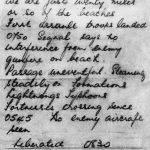 we are just twenty miles
or so of the beaches
First assault troops landed
0750 Signal says no
interference from enemy
gunfire on beach.
Passage uneventful. Steaming
steadily on formation
Lightnings Typhoons
Fortresses crossing since
0545 No enemy aircraft
seen
Liberated